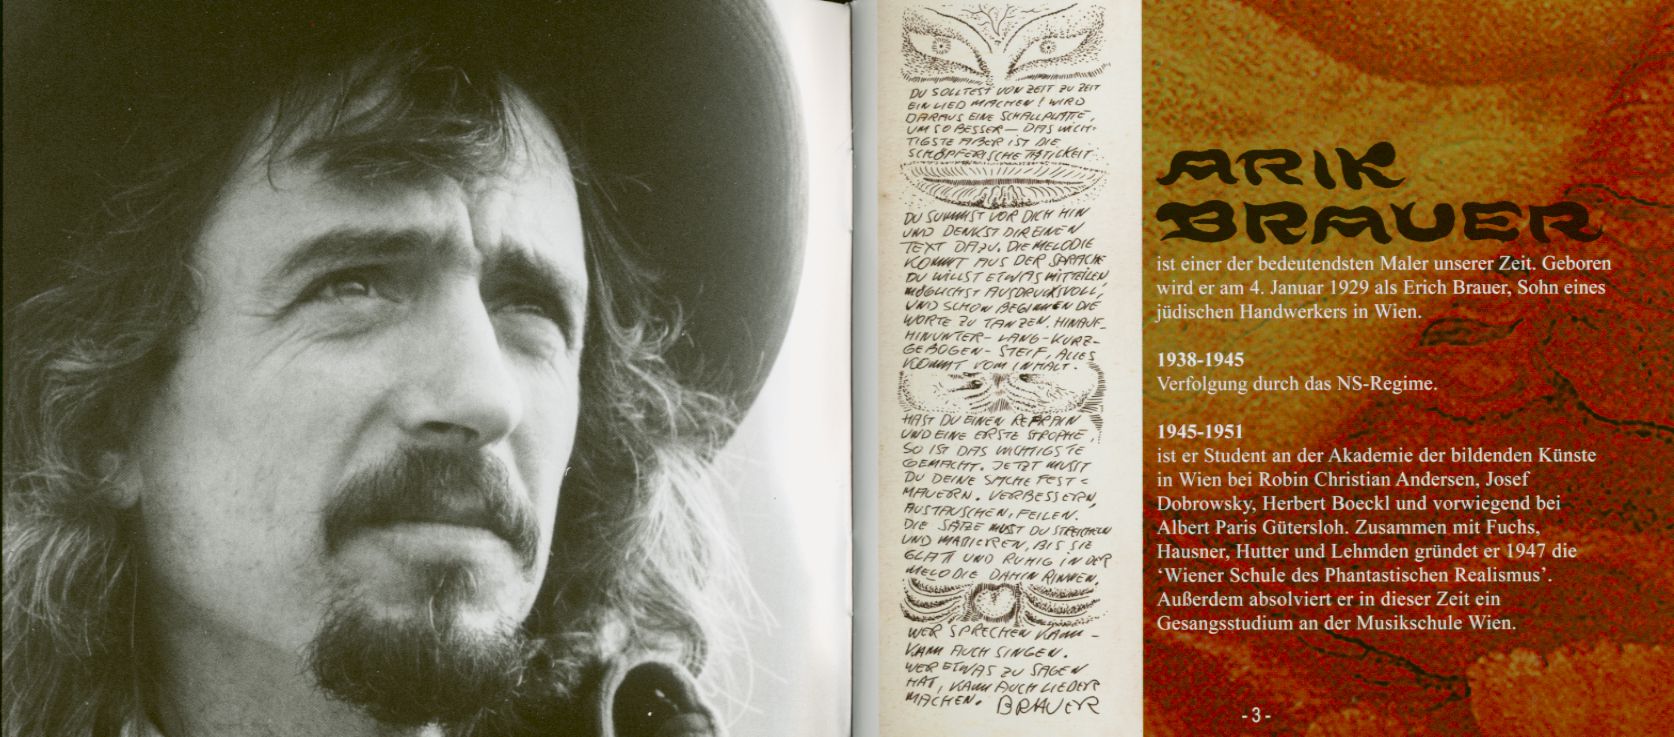 DU SOLLTEST VON ZEIT ZU ZEIT
EIN LIED MACHEN! WIRD
DARAUS EINE SCHALLPLATTE,
UM SO BESSER — DAS WICH-
TIGSTE ABER IST DIE
SCHÖPFERISCHE TÄTIGKEIT.
DU SUMMST VOR DICH HIN
UND DENKST DIR EINEN
TEXT DAZU. DIE MELODIE
KOMMT AUS DER SPRACHE
DU WILLST ETWAS MITTEILEN,
MÖGLICHST AUSDRUCKSVOLL,
UND SCHON BEGINNEN DIE
WORTE ZU TANZEN. HINAUF-
HINUNTER - LANG - KURZ-
GEBOGEN - STEIF, ALLES
KOMMT VOM INHALT.
HAST DU EINEN REFRAIN
UND EINE ERSTE STROPHE,
SO IST DAS WICHTIGSTE
GEMACHT. JETZT MUSST
DU DEINE SACHE FEST-
MAUERN. VERBESSERN,
AUSTAUSCHEN, FEILEN.
DIE SÄTZE MUSST DU STREICHELN
UND MASSIEREN, BIS SIE
GLATT UND RUHIG IN DER
MELODIE DAHIN RINNEN.
WER SPRECHEN KANN -
KANN AUCH SINGEN.
WER ETWAS ZU SAGEN
HAT, KANN AUCH LIEDER
MACHEN. BRAUER
ARIK
BRAUER
ist einer der bedeutendsten Maler unserer Zeit. Geboren
wird er am 4. Januar 1929 als Erich Brauer, Sohn eines
jüdischen Handwerkers in Wien.
1938-1945
Verfolgung durch das NS-Regime.
1945-1951
ist er Student an der Akademie der bildenden Künste
in Wien bei Robin Christian Andersen, Josef
Dobrowsky, Herbert Boeckl und vorwiegend bei
Albert Paris Gütersloh. Zusammen mit Fuchs,
Hausner, Hutter und Lehmden gründet er 1947 die
‘Wiener Schule des Phantastischen Realismus’.
Außerdem absolviert er in dieser Zeit ein
Gesangsstudium an der Musikschule Wien.
- 3 -